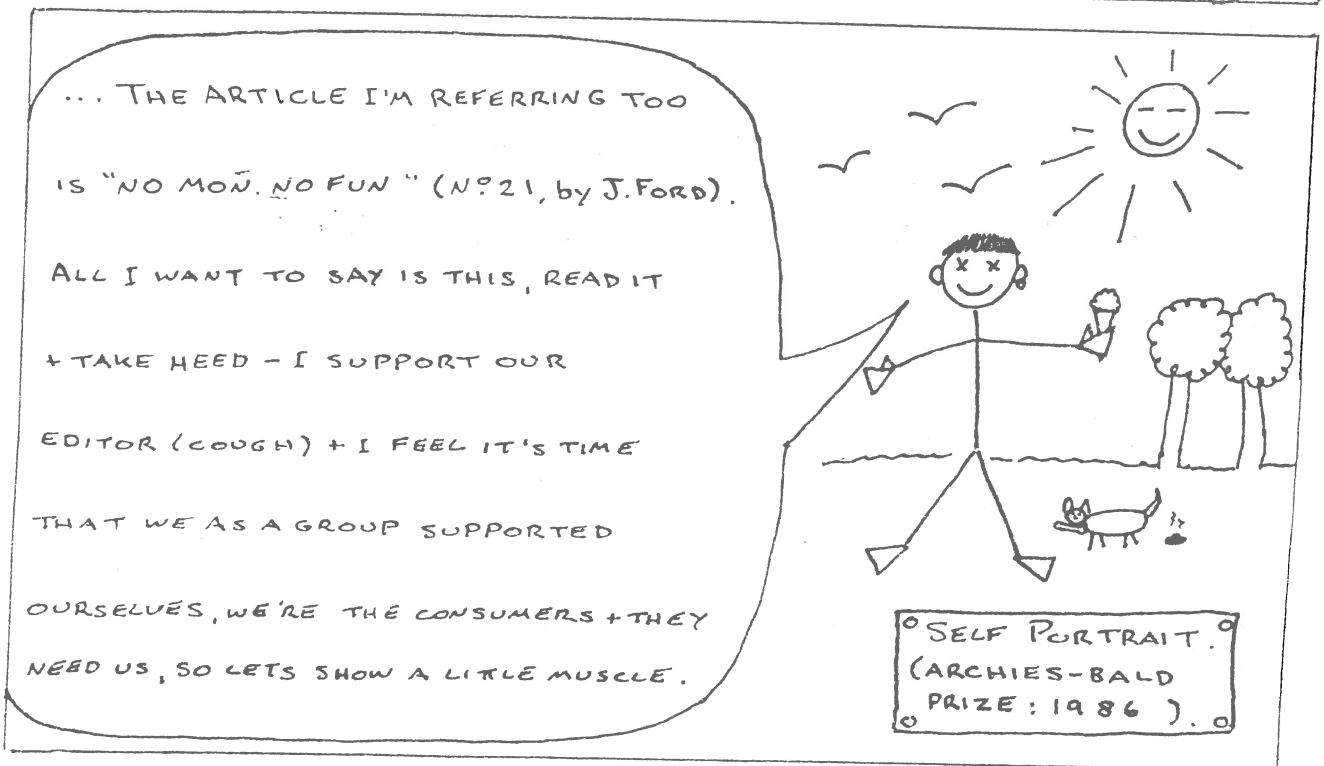 ... THE ARTICLE I'M REFERRING TOO
IS "NO MOÑ. NO FUN" (Nº 21, by J. FORD).
ALL I WANT TO SAY IS THIS, READ IT
+ TAKE HEED - I SUPPORT OUR
EDITOR (COUGH) + I FEEL IT'S TIME
THAT WE AS A GROUP SUPPORTED
OURSELVES, WE'RE THE CONSUMERS + THEY
NEED US, SO LETS SHOW A LITTLE MUSCLE.
SELF PORTRAIT.
(ARCHIES-BALD
PRIZE: 1986).